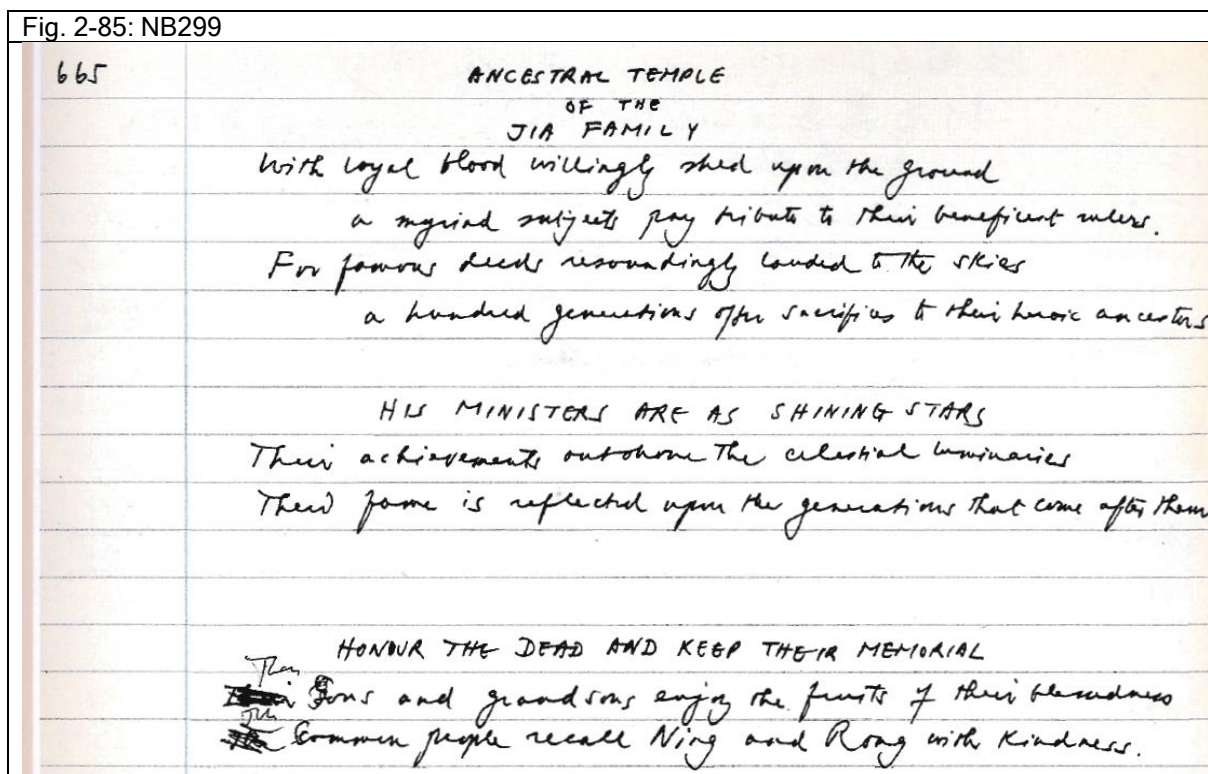 Fig. 2-85: NB299
665
ANCESTRAL TEMPLE
OF THE
JIA FAMILY
With loyal blood willingly shed upon the ground
a myriad subjects pay tribute to their beneficent rulers.
For famous deeds resoundingly lauded to the skies
a hundred generations offer sacrifices to their heroic ancestors
HIS MINISTERS ARE AS SHINING STARS
Their achievements outshone the celestial luminaries
Their fame is reflected upon the generations that come after them
HONOUR THE DEAD AND KEEP THEIR MEMORIAL
Sons and grandsons enjoy the fruits of their blessedness
Common people recall Ning and Rong with kindness.